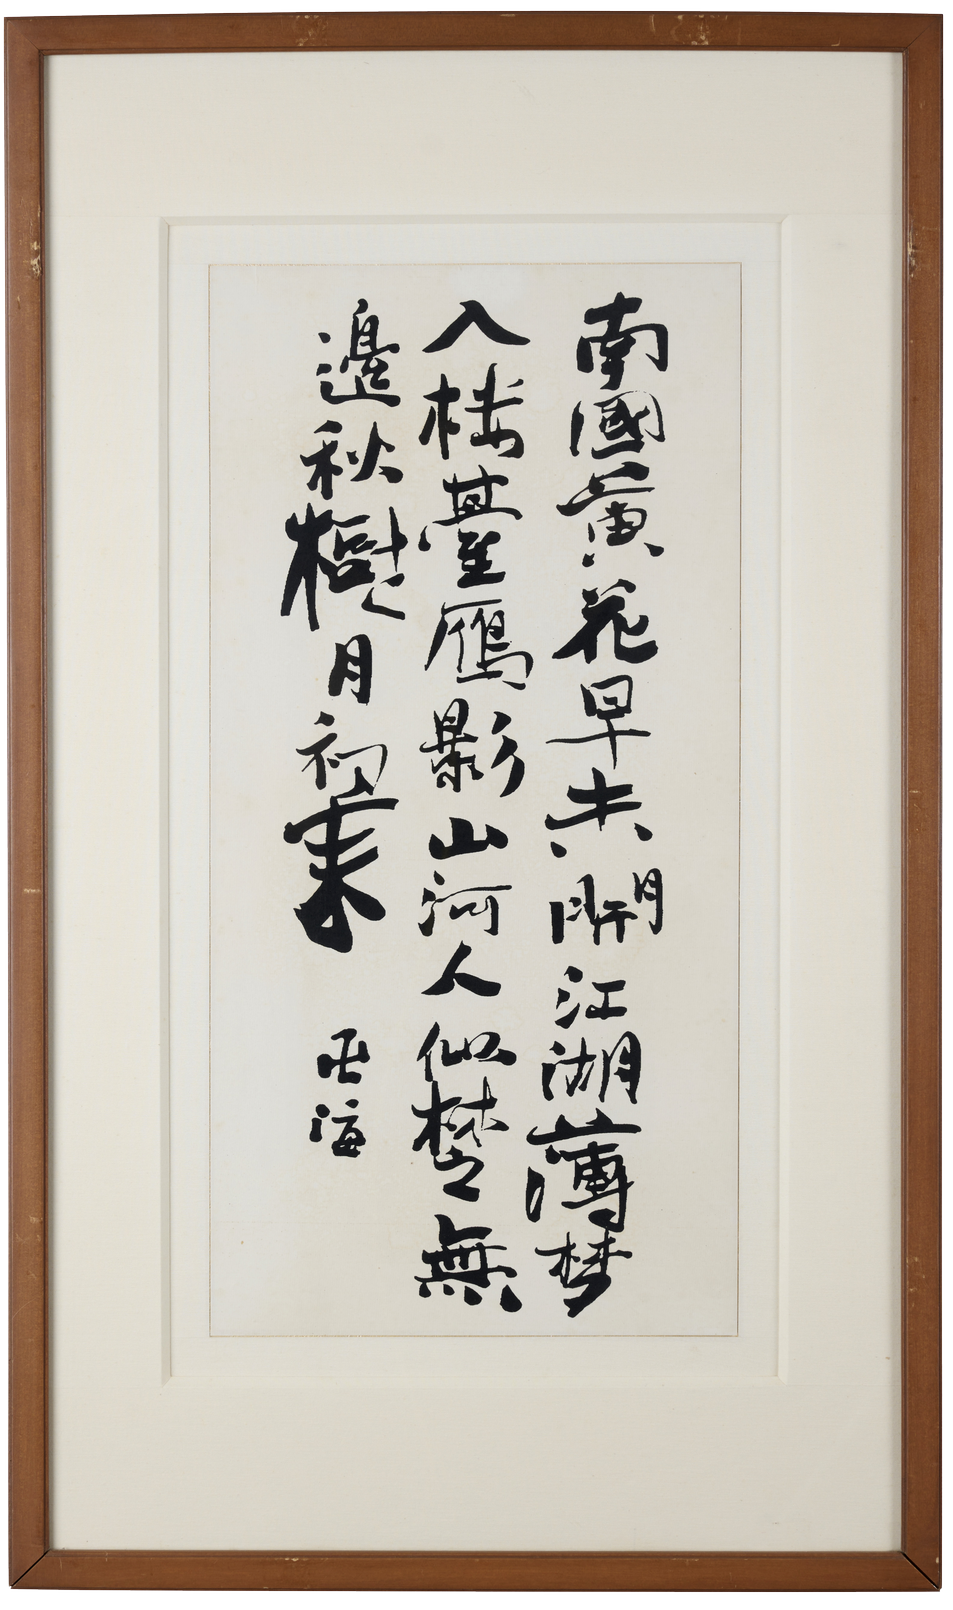 南國黃花早共開江湖薄梦
入楼臺雁影山河人似楚無
邊秋樹月初來
海